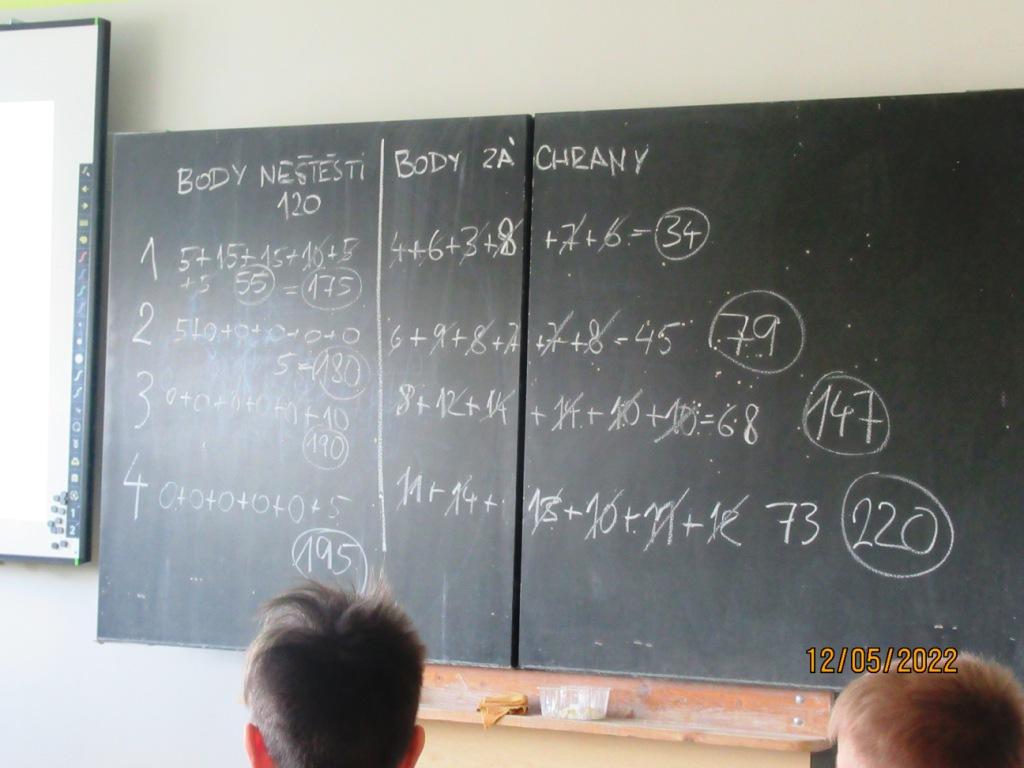 BODY NEŠTĚSTÍ BODY ZÁCHRANY
120
1 5+15+15+10+5 4+6+3+8 +7+6=34
+5 55 = 175
2 5+0+0+0+0+0 6+9+8+7 +7+8=45 79
5=180
3 0+0+0+0+0+10 8+12+14 +14+10+10=68 147
190
4 0+0+0+0+0+5 11+14+ 13+10+11+12 73 220
195
12/05/2022